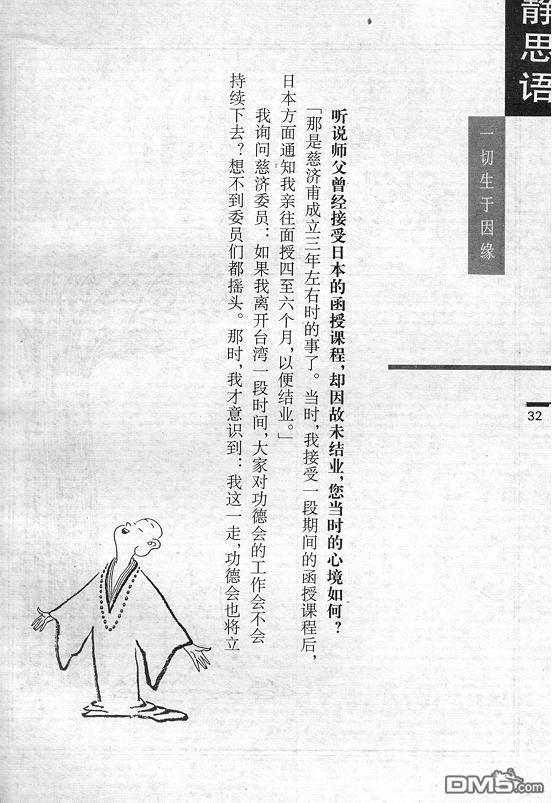 静思语
一切生于因缘
32
听说师父曾经接受日本的函授课程，却因故未结业，您当时的心境如何？
「那是慈济甫成立三年左右时的事了。当时，我接受一段期间的函授课程后，
日本方面通知我亲往面授四至六个月，以便结业。」
我询问慈济委员：如果我离开台湾一段时间，大家对功德会的工作会不会
持续下去？想不到委员们都摇头。那时，我才意识到：我这一走，功德会也将立
DM5.com